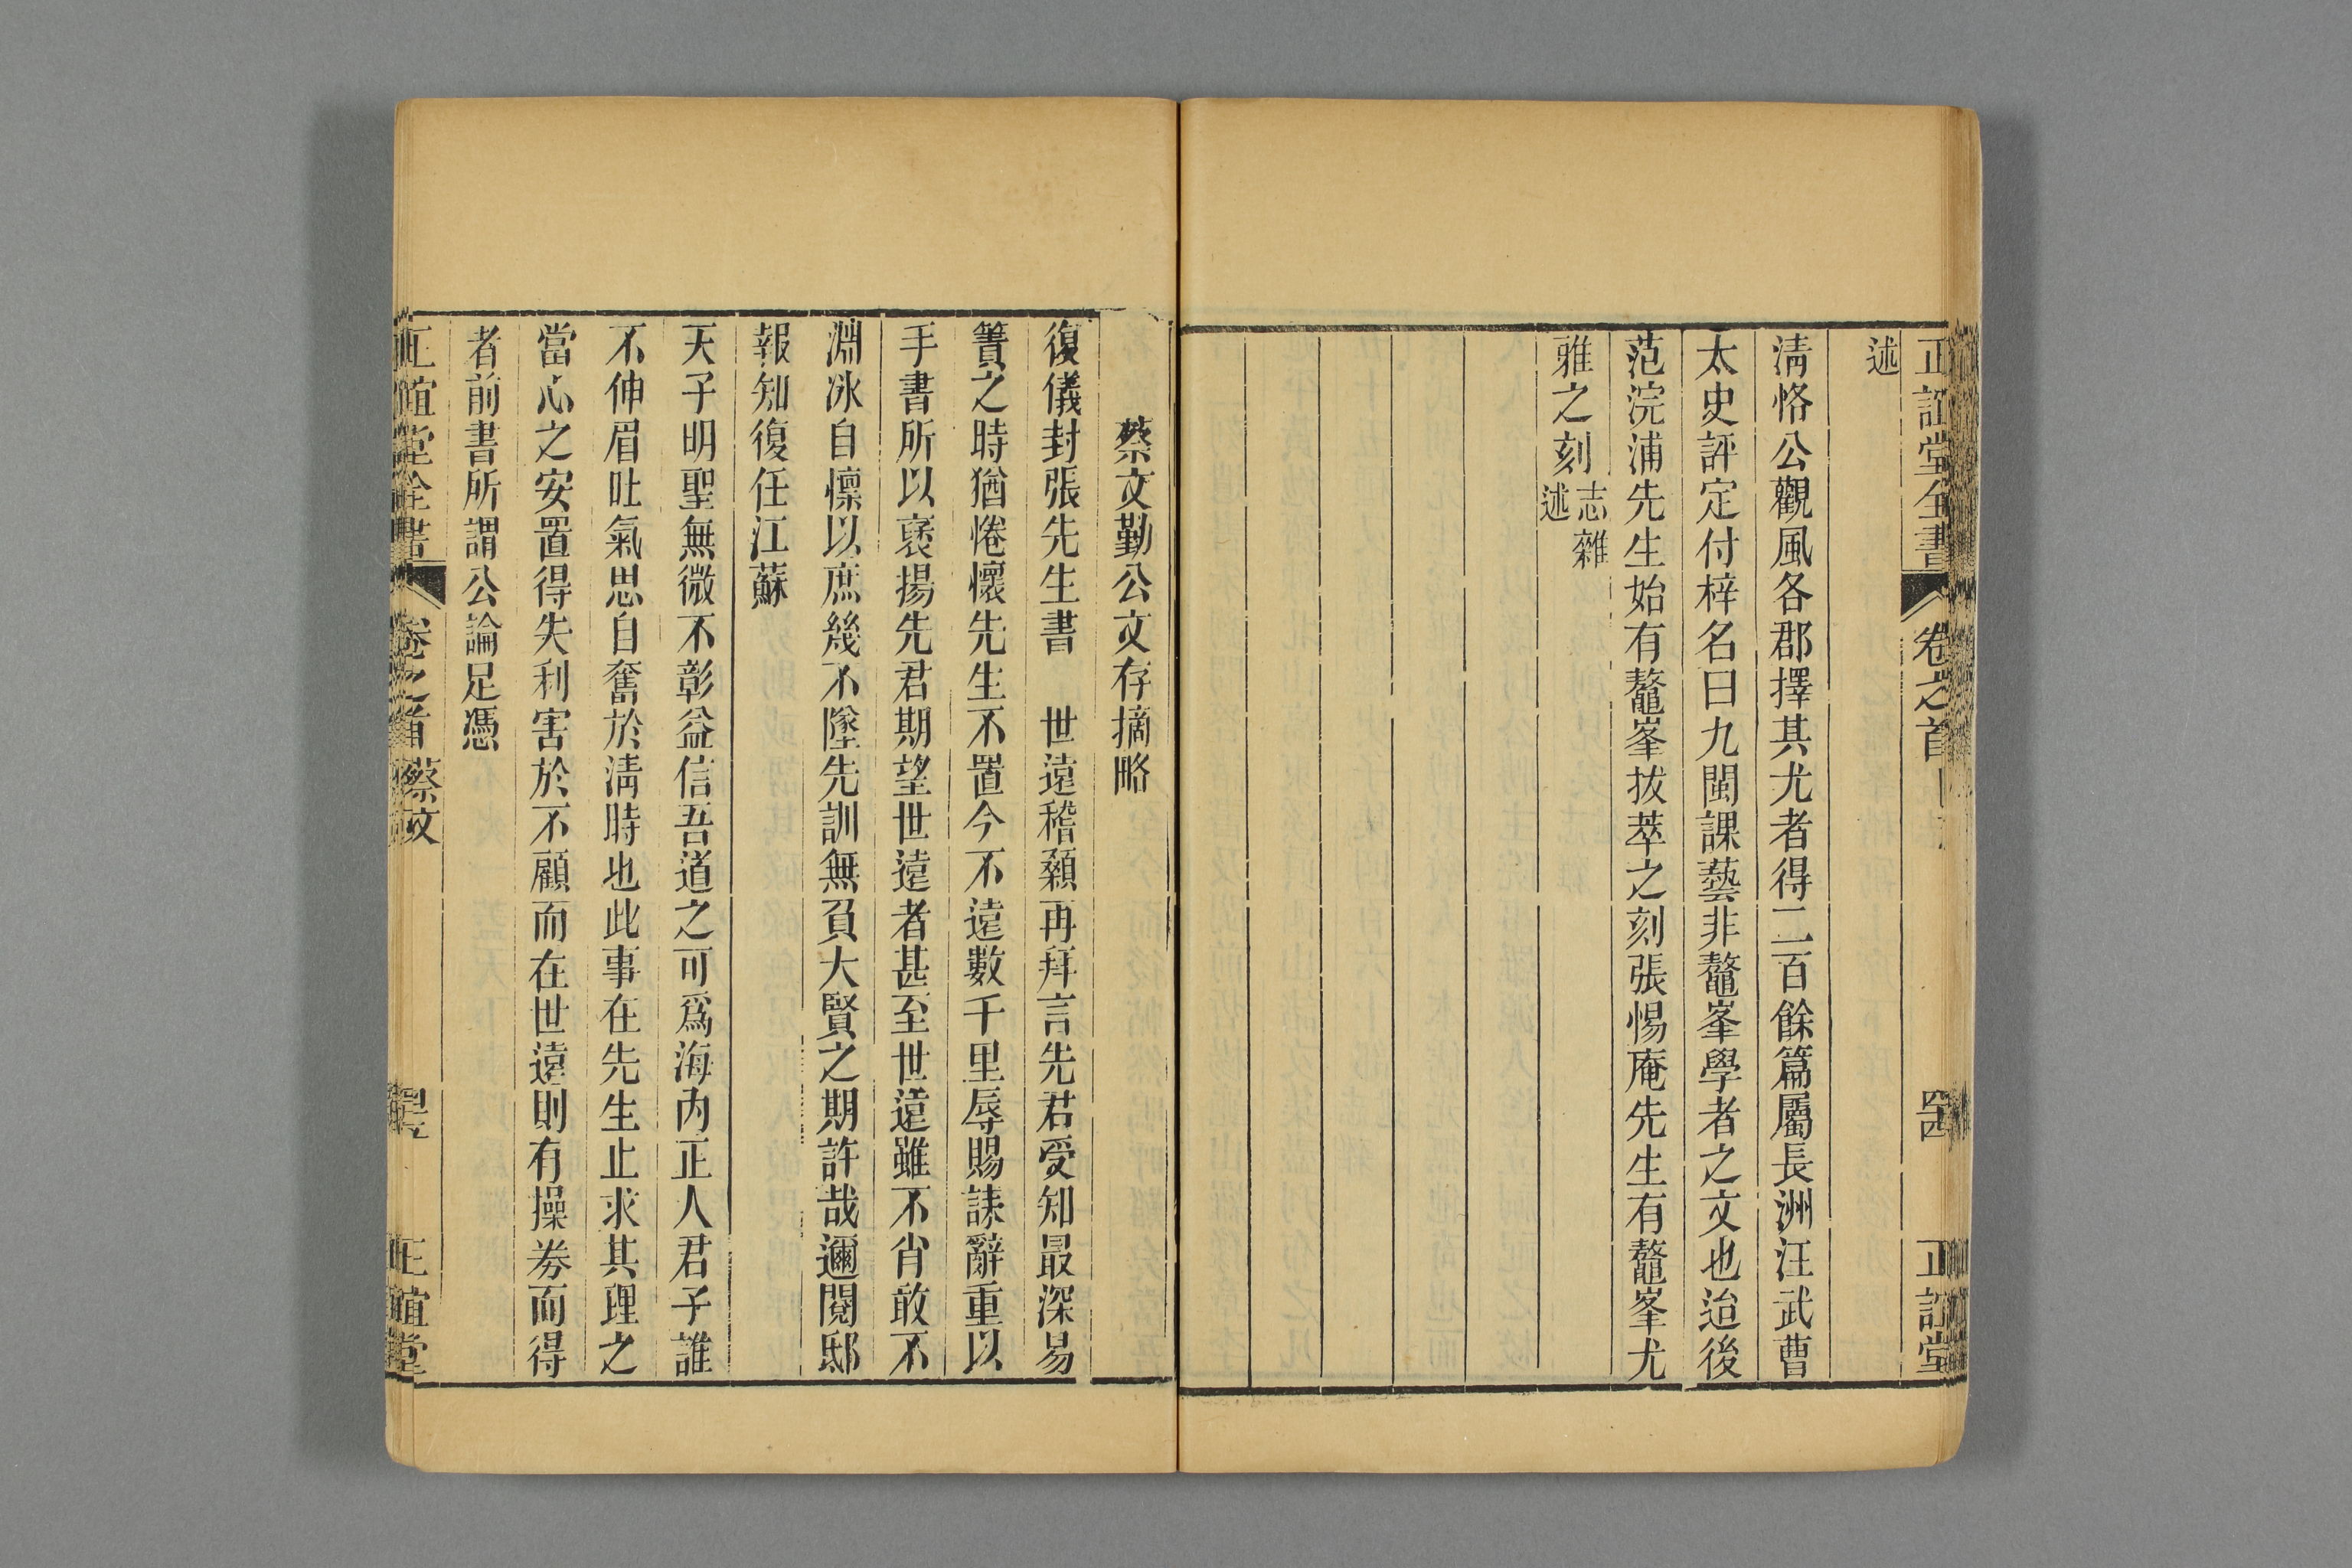 正誼堂全書 卷之首 四十四 正誼堂
述
清恪公觀風各郡擇其尤者得二百餘篇屬長洲汪武曹
太史評定付梓名曰九閩課藝非鼇峯學者之文也迨後
范浣浦先生始有鼇峯拔萃之刻張惕庵先生有鼇峯尤
雅之刻志雜述
蔡文勤公文存摘略
復儀封張先生書 世遠稽顙再拜言先君受知最深易
簀之時猶惓懷先生不置今不遠數千里辱賜誄辭重以
手書所以襃揚先君期望世遠者甚至世遠雖不肖敢不
淵冰自懍以庶幾不墜先訓無負大賢之期許哉邇閱邸
報知復任江蘇
天子明聖無微不彰益信吾道之可爲海內正人君子誰
不伸眉吐氣思自奮於淸時也此事在先生止求其理之
當心之安置得失利害於不顧而在世遠則有操券而得
者前書所謂公論足憑
正誼堂全書 卷之首 蔡文 正誼堂